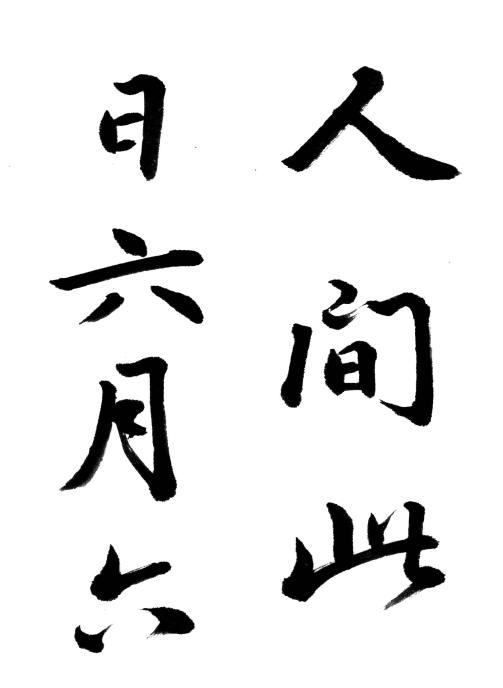 人间此
日六月六